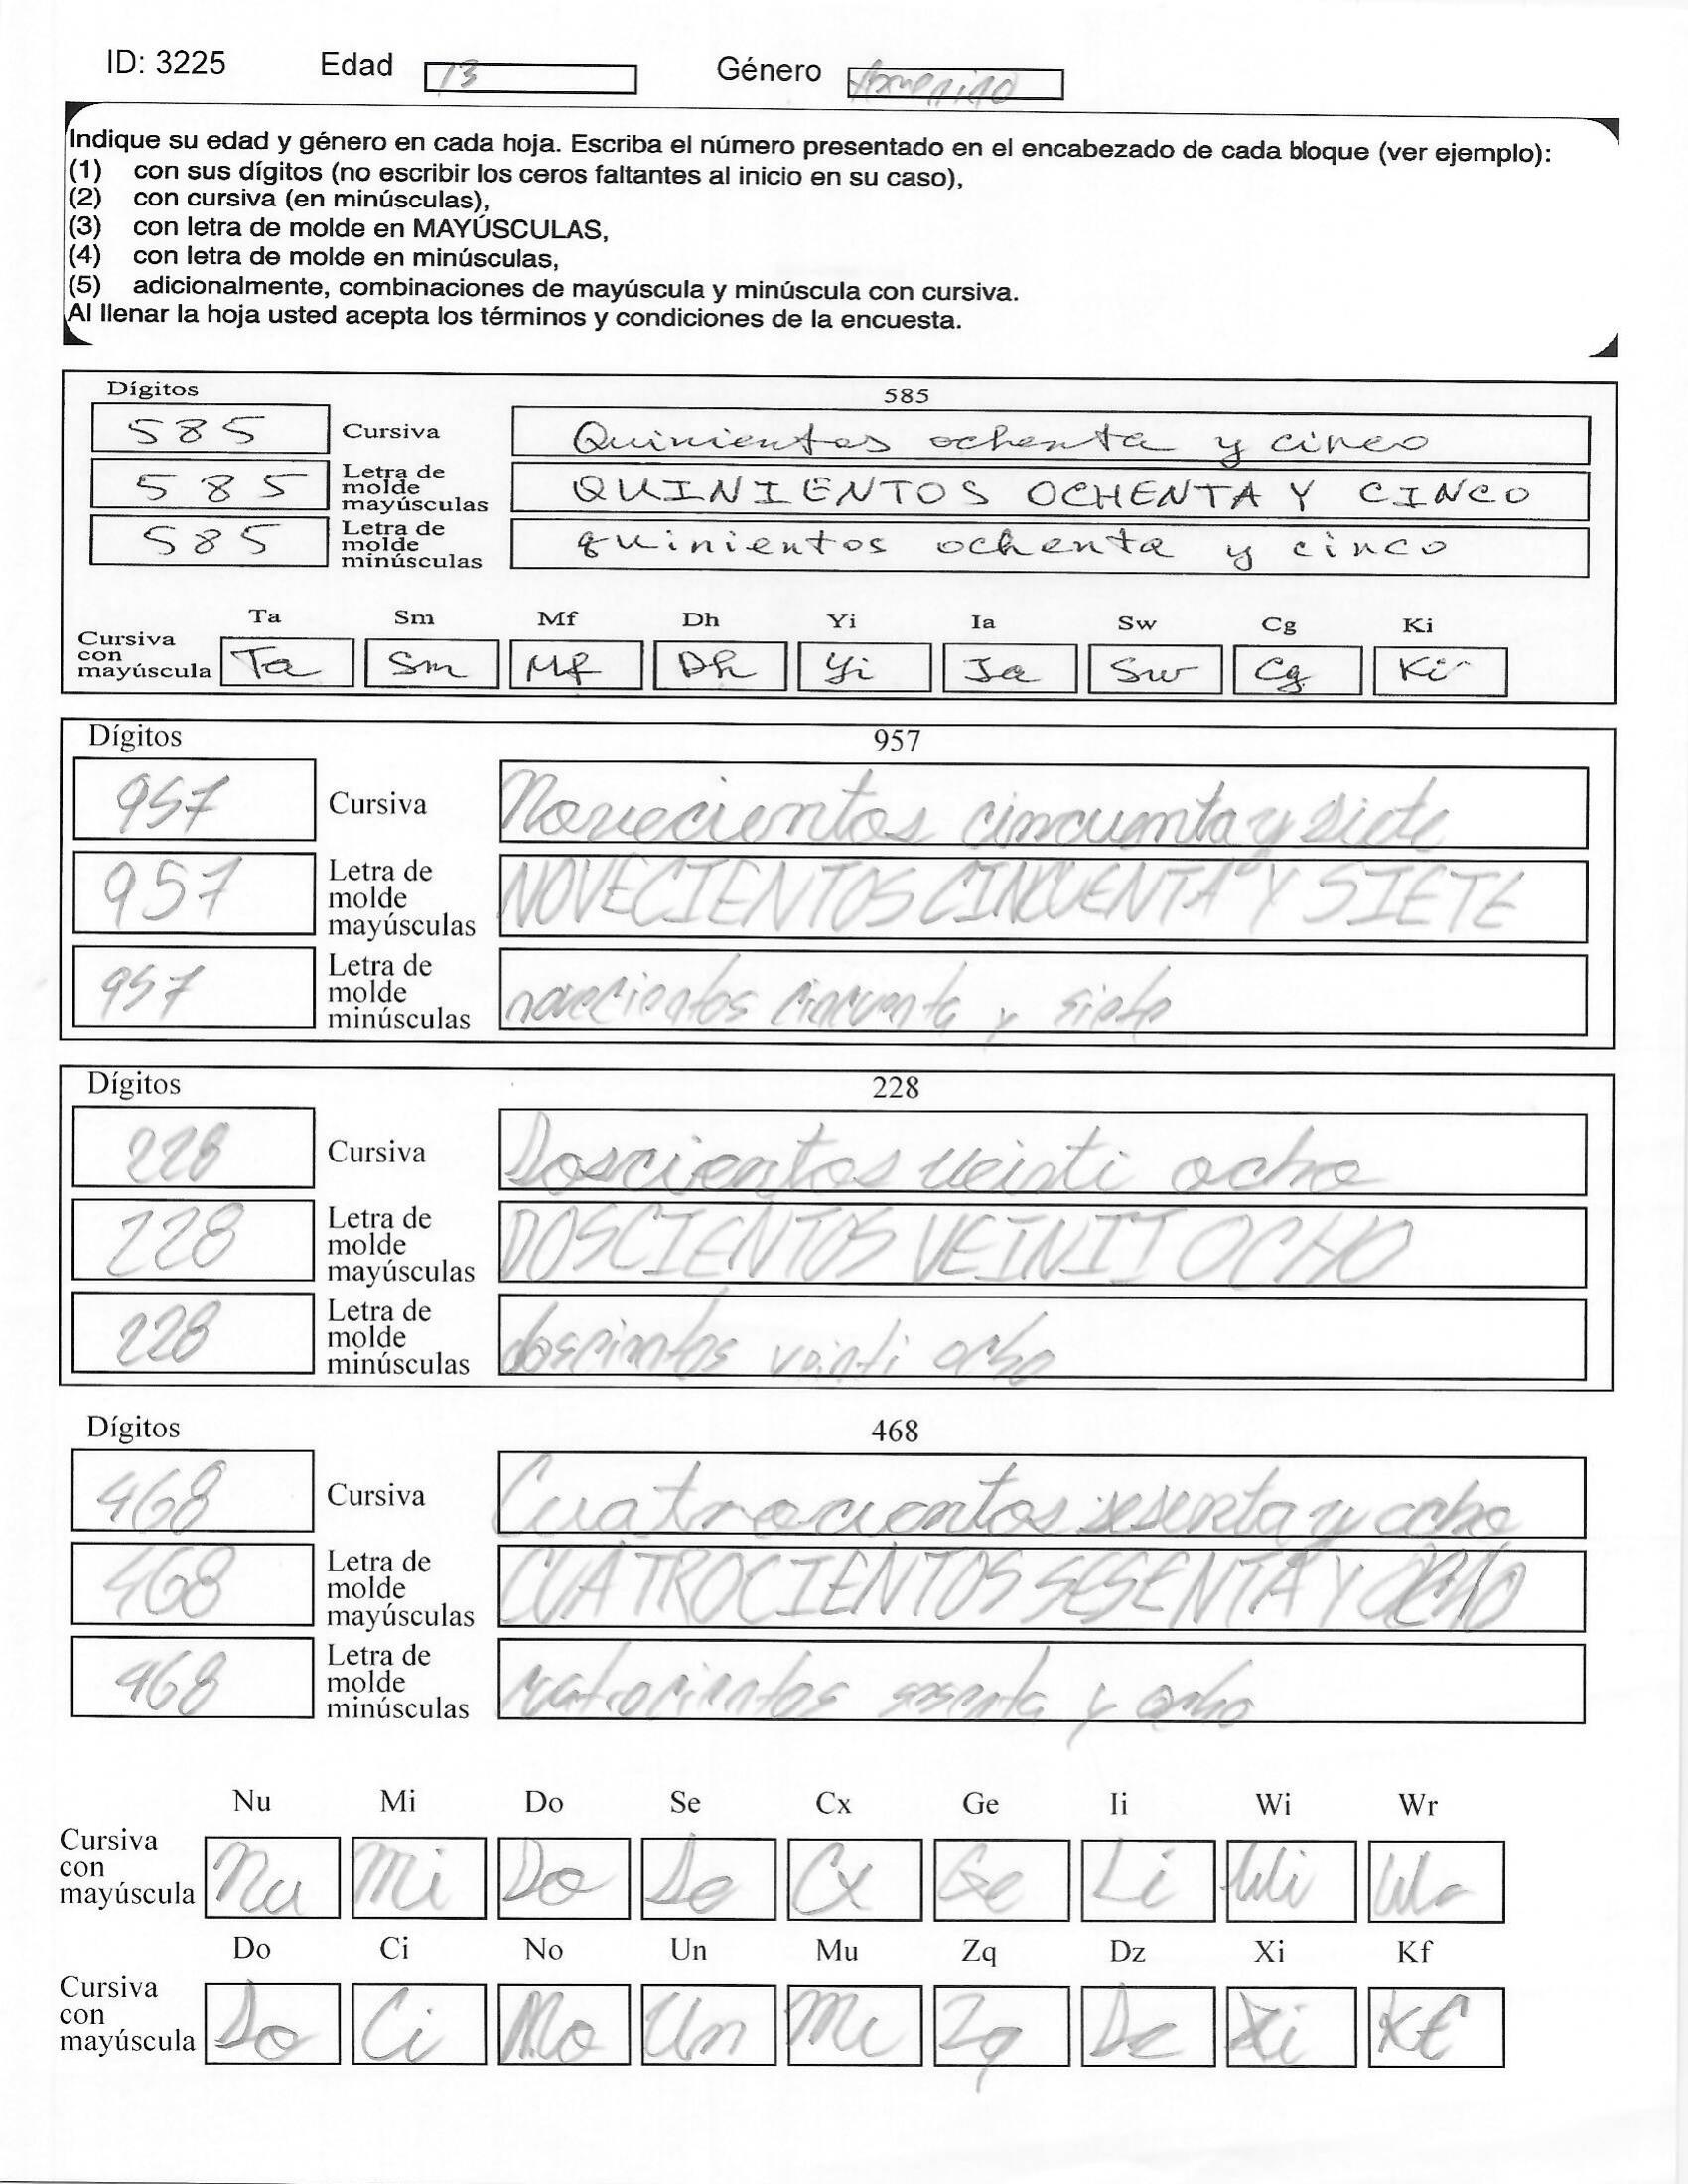 ID: 3225 Edad 13 Género femenino
Indique su edad y género en cada hoja. Escriba el número presentado en el encabezado de cada bloque (ver ejemplo):
(1) con sus dígitos (no escribir los ceros faltantes al inicio en su caso),
(2) con cursiva (en minúsculas),
(3) con letra de molde en MAYÚSCULAS,
(4) con letra de molde en minúsculas,
(5) adicionalmente, combinaciones de mayúscula y minúscula con cursiva.
Al llenar la hoja usted acepta los términos y condiciones de la encuesta.
Dígitos 585
585 Cursiva Quinientos ochenta y cinco
585 Letra de molde mayúsculas QUINIENTOS OCHENTA Y CINCO
585 Letra de molde minúsculas quinientos ochenta y cinco
Ta Sm Mf Dh Yi Ia Sw Cg Ki
Cursiva con mayúscula Ta Sm Mf Dh Yi Ia Sw Cg Ki
Dígitos 957
957 Cursiva Novecientos cincuenta y siete
957 Letra de molde mayúsculas NOVECIENTOS CINCUENTA Y SIETE
957 Letra de molde minúsculas novecientos cincuenta y siete
Dígitos 228
228 Cursiva Doscientos veinti ocho
228 Letra de molde mayúsculas DOSCIENTOS VEINIT OCHO
228 Letra de molde minúsculas doscientos veinti ocho
Dígitos 468
468 Cursiva Cuatrocientos sesenta y ocho
468 Letra de molde mayúsculas CUATROCIENTOS SESENTA Y OCHO
468 Letra de molde minúsculas cuatrocientos sesenta y ocho
Nu Mi Do Se Cx Ge Ii Wi Wr
Cursiva con mayúscula Nu Mi Do Se Cx Ge Li Wi Wr
Do Ci No Un Mu Zq Dz Xi Kf
Cursiva con mayúscula Do Ci No Un Mu Zq Dz Xi Kf